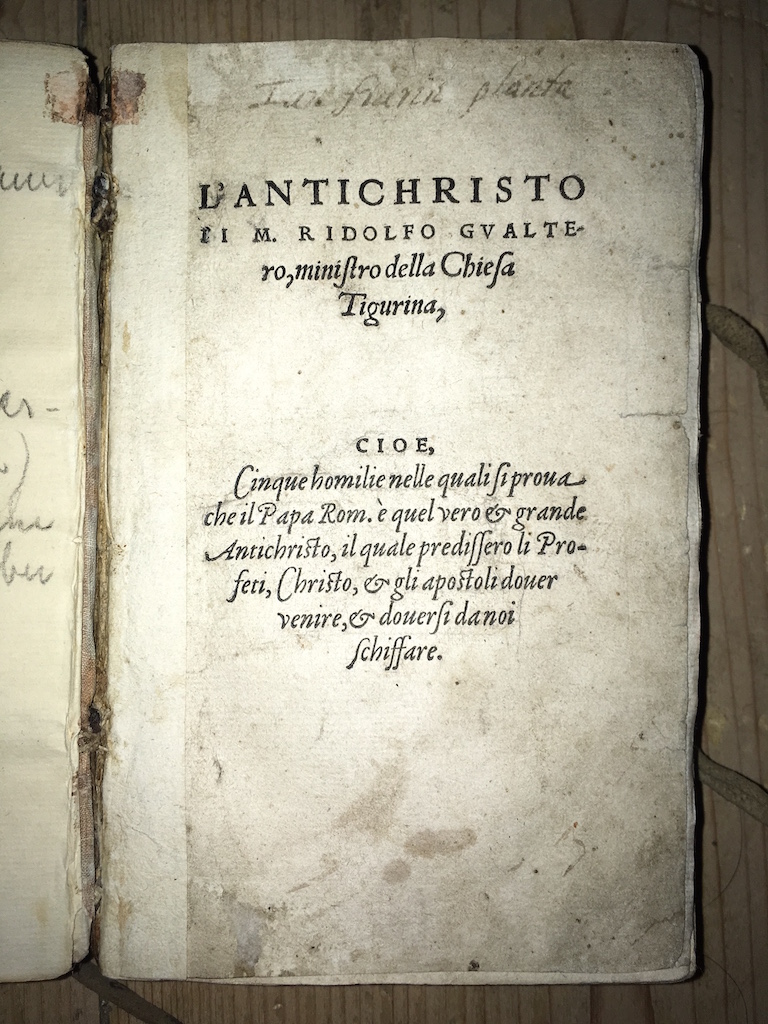 planta
L'ANTICHRISTO
DI M. RIDOLFO GVALTE-
ro, miniſtro della Chieſa
Tigurina,
CIOE,
Cinque homilie nelle quali ſi proua
che il Papa Rom. è quel vero & grande
Antichriſto, il quale prediſſero li Pro-
feti, Chriſto, & gli apoſtoli douer
venire, & douerſi da noi
ſchiffare.